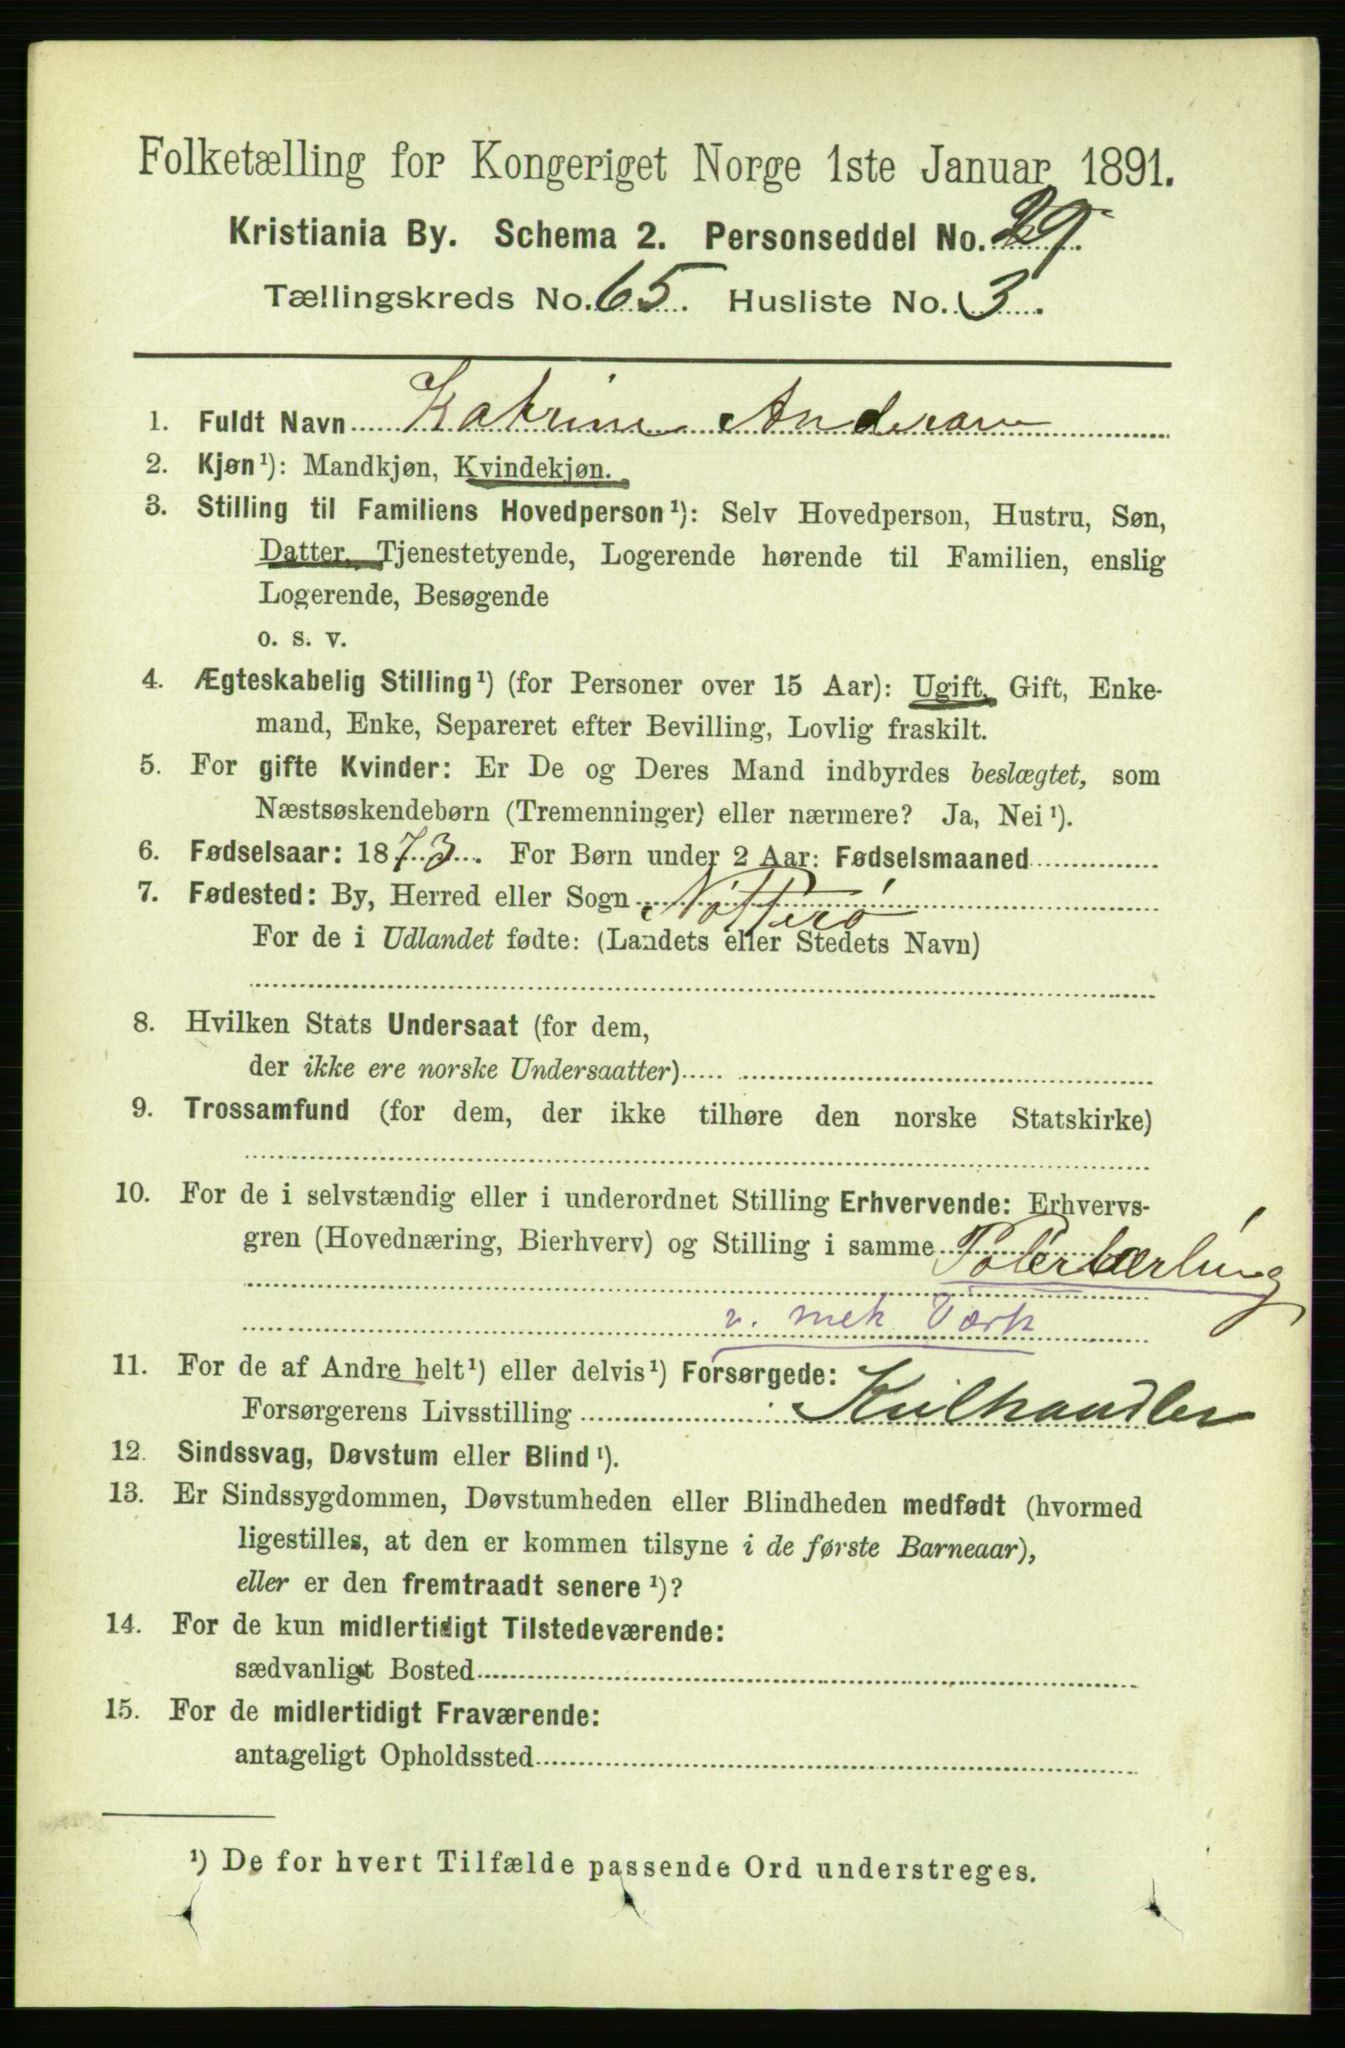 Folketælling for Kongeriget Norge 1ste Januar 1891.
Kristiania By. Schema 2. Personseddel No. 29.
Tællingskreds No. 65. Husliste No. 3.
1. Fuldt Navn Katrine Andersen
2. Kjøn¹): Mandkjøn, Kvindekjøn.
3. Stilling til Familiens Hovedperson¹): Selv Hovedperson, Hustru, Søn,
Datter, Tjenestetyende, Logerende hørende til Familien, enslig
Logerende, Besøgende
o. s. v.
4. Ægteskabelig Stilling¹) (for Personer over 15 Aar): Ugift, Gift, Enke-
mand, Enke, Separeret efter Bevilling, Lovlig fraskilt.
5. For gifte Kvinder: Er De og Deres Mand indbyrdes beslægtet, som
Næstsøskendebørn (Tremenninger) eller nærmere? Ja, Nei¹).
6. Fødselsaar: 1873. For Børn under 2 Aar: Fødselsmaaned
7. Fødested: By, Herred eller Sogn Nötterö
For de i Udlandet fødte: (Landets eller Stedets Navn)
8. Hvilken Stats Undersaat (for dem,
der ikke ere norske Undersaatter)
9. Trossamfund (for dem, der ikke tilhøre den norske Statskirke)
10. For de i selvstændig eller i underordnet Stilling Erhvervende: Erhvervs-
gren (Hovednæring, Bierhverv) og Stilling i samme Polerlærling
v. mek Værk
11. For de af Andre helt¹) eller delvis¹) Forsørgede:
Forsørgerens Livsstilling Kulhandler
12. Sindssvag, Døvstum eller Blind¹).
13. Er Sindssygdommen, Døvstumheden eller Blindheden medfødt (hvormed
ligestilles, at den er kommen tilsyne i de første Barneaar),
eller er den fremtraadt senere¹)?
14. For de kun midlertidigt Tilstedeværende:
sædvanligt Bosted
15. For de midlertidigt Fraværende:
antageligt Opholdssted
¹) De for hvert Tilfælde passende Ord understreges.